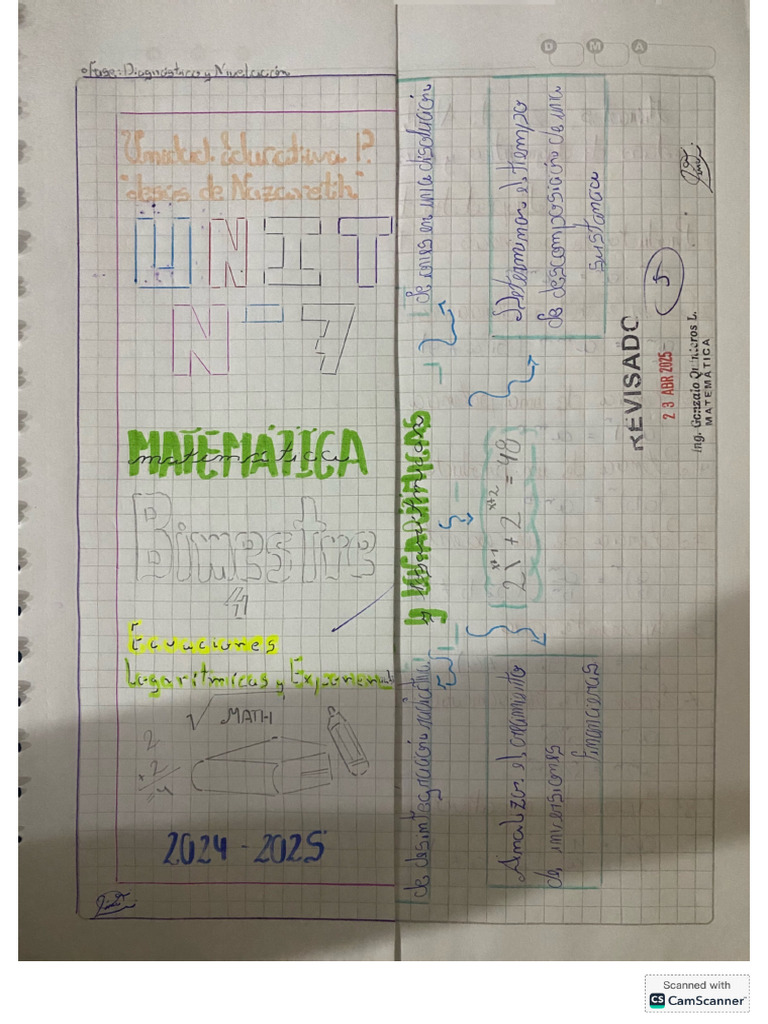 Fase: Diagnóstico y Nivelación
Unidad Educativa P.
"Jesús de Nazareth"
UNIT
N-7
MATEMÁTICA
matemática
Bimestre
4
Ecuaciones
Logarítmicas y Exponen
√MATH
2
+2
4
2024-2025
D M A
de iones en una disolución
Determinar el tiempo
de descomposición de una
sustancia
Y LOGARÍTMICAS
2^x-1 + 2^x+2 = 48
de desintegración radiactiva
Analizar el crecimiento
de inversiones
financieras
REVISADO
23 ABR 2025
5
Ing. Gonzalo Quinteros L.
MATEMÁTICA
Scanned with
CS CamScanner